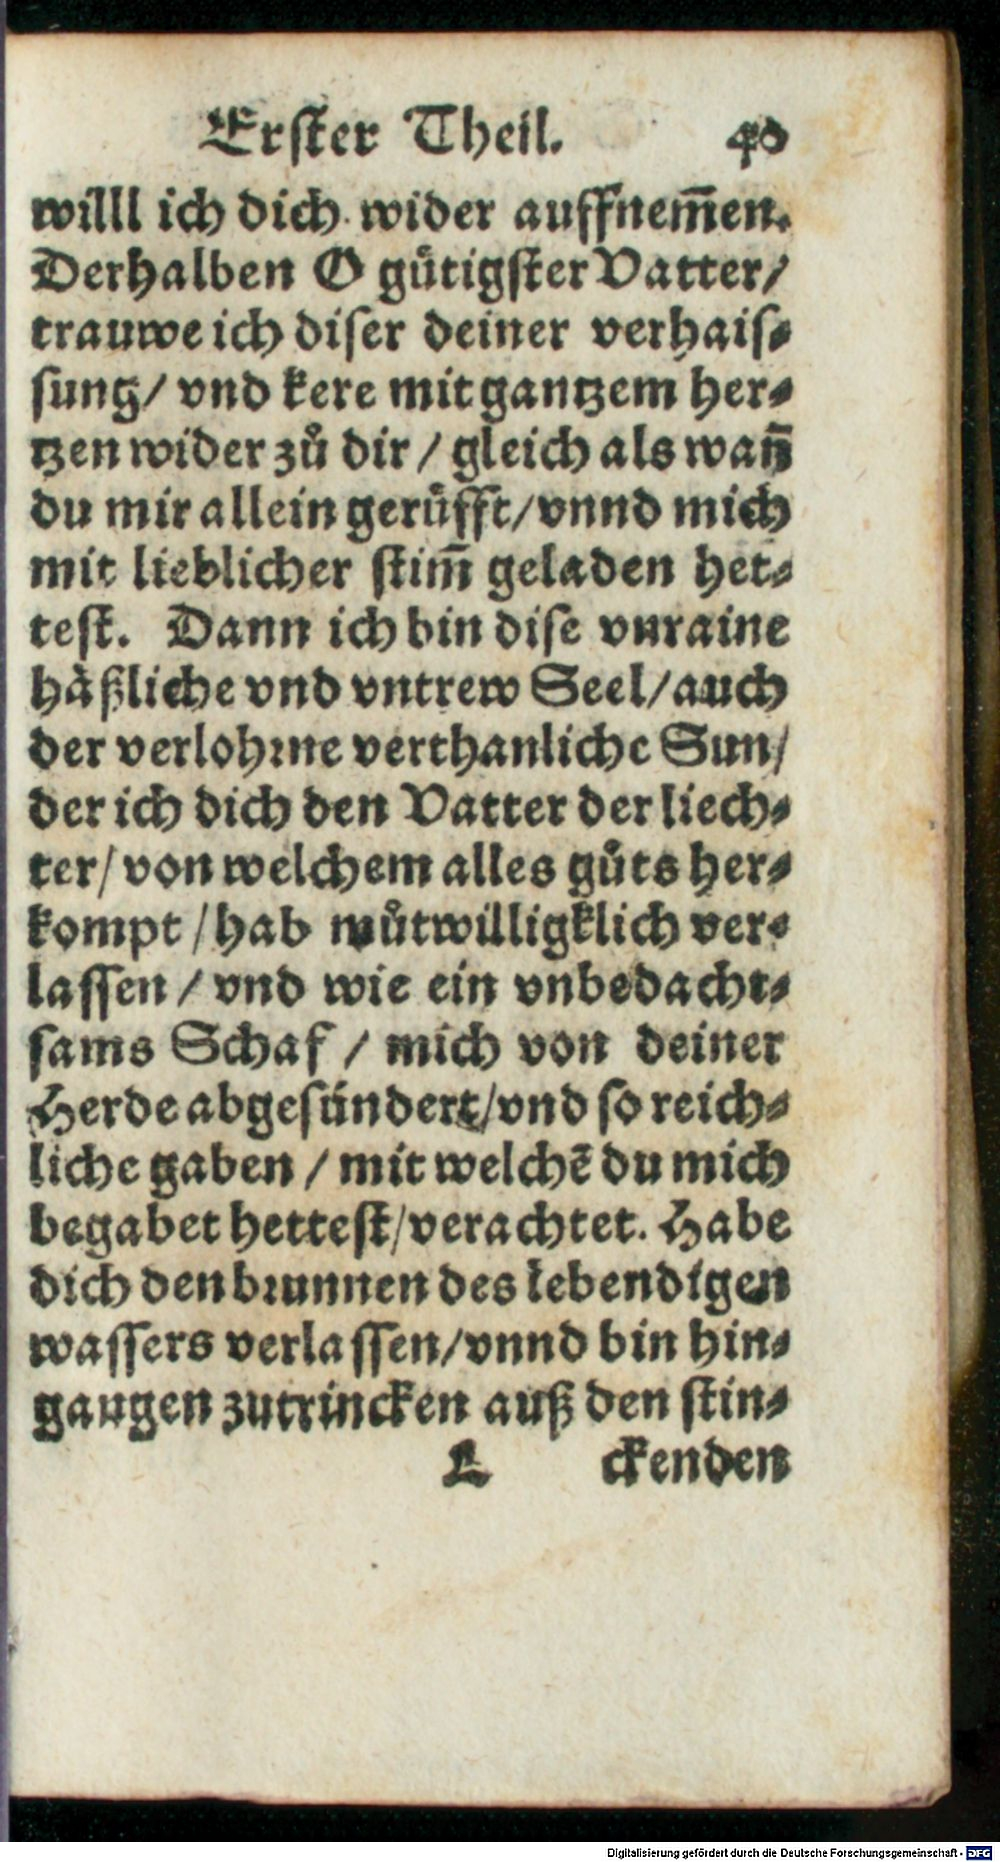 Erster Theil. 40
willl ich dich wider auffnem̃en.
Derhalben O gůtigster Vatter/
trauwe ich diser deiner verhais⸗
sung/ vnd kere mit gantzem her⸗
tzen wider zů dir / gleich als wañ
du mir allein gerůfft/ vnnd mich
mit lieblicher stim̃ geladen het⸗
test. Dann ich bin dise vnraine
håßliche vnd vntrew Seel/ auch
der verlohrne verthanliche Sun/
der ich dich den Vatter der liech⸗
ter/ von welchem alles gůts her⸗
kompt / hab můtwilligklich ver⸗
lassen / vnd wie ein vnbedacht⸗
sams Schaf / mich von deiner
Herde abgesündert/ vnd so reich⸗
liche gaben / mit welchẽ du mich
begabet hettest/ verachtet. Habe
dich den brunnen des lebendigen
wassers verlassen/ vnnd bin hin⸗
gangen zutrincken auß den stin⸗
L ckenden
Digitalisierung gefördert durch die Deutsche Forschungsgemeinschaft - DFG